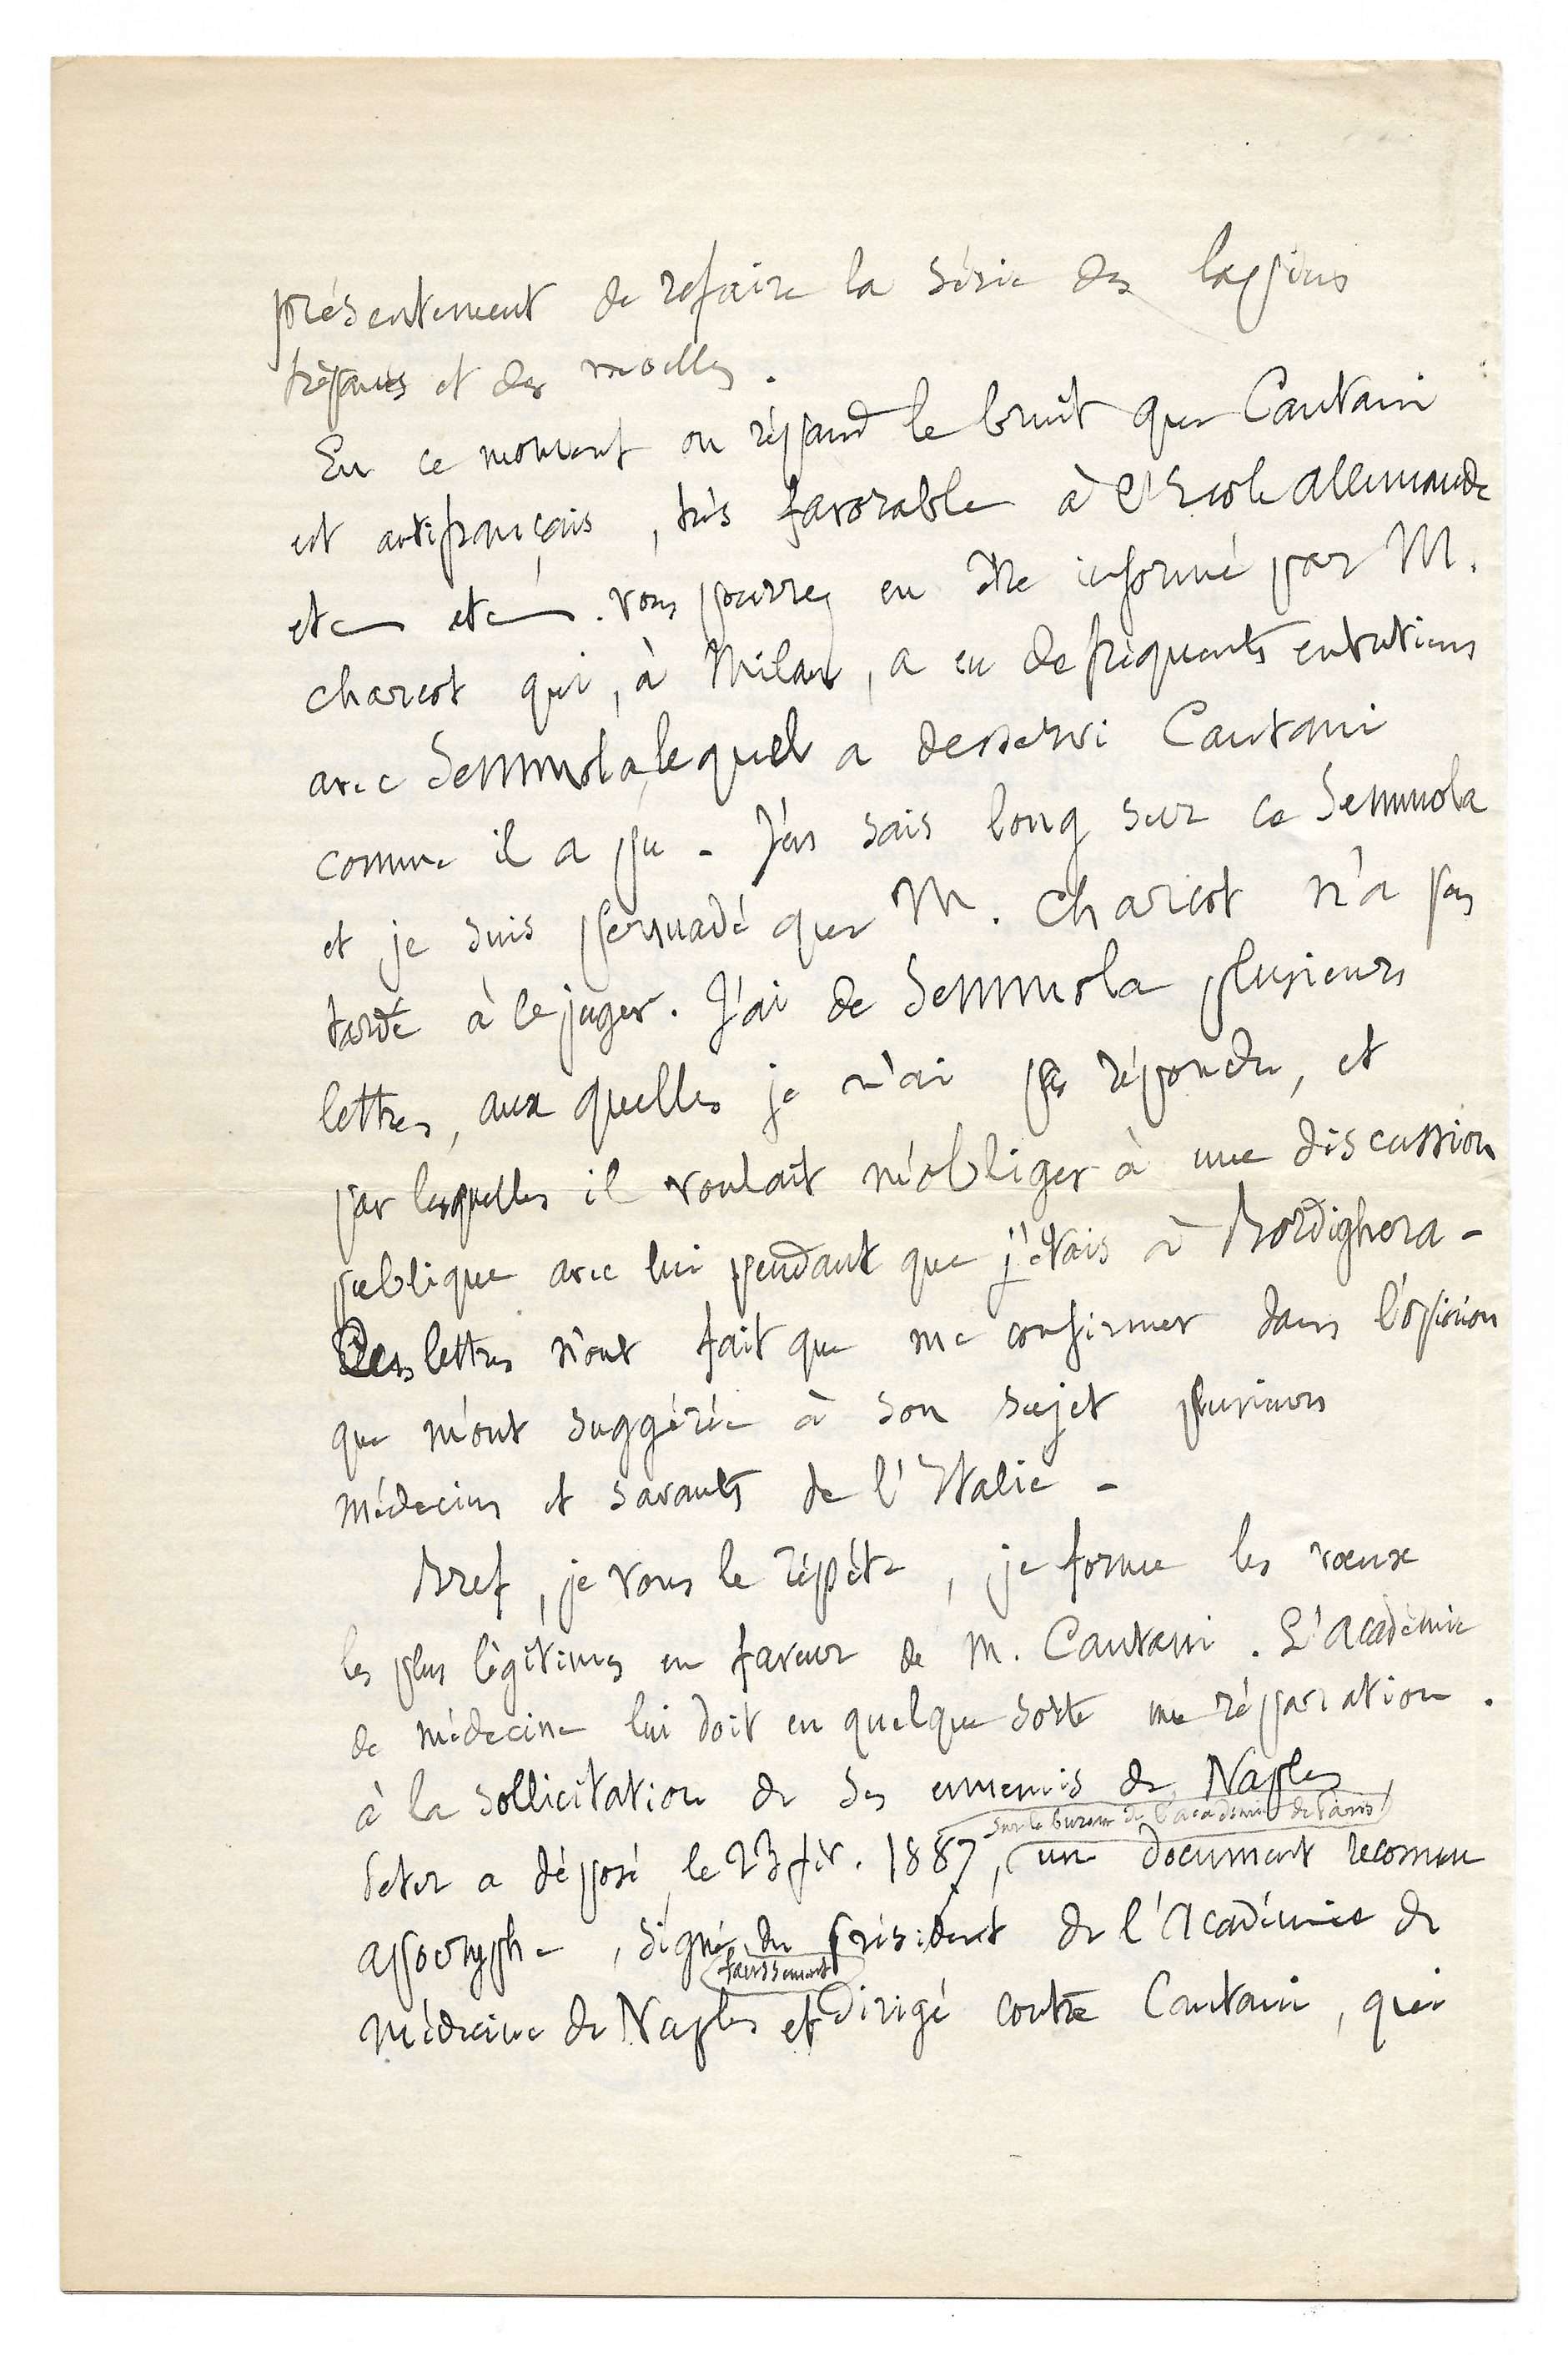 présentement de refaire la série des lapins
trépanés et des moelles.
En ce moment on répand le bruit que Cantani
est antifrançais, très favorable à l'Ecole allemande
etc etc. Vous pourrez en être informé par M.
Charcot qui, à Milan, a eu de fréquents entretiens
avec Semmola, lequel a desservi Cantani
comme il a pu - J'en sais long sur ce Semmola
et je suis persuadé que M. Charcot n'a pas
tardé à le juger. J'ai de Semmola plusieurs
lettres, aux quelles je n'ai pas répondu, et
par lesquelles il voulait m'obliger à une discussion
publique avec lui pendant que j'étais à Bordighera -
Ces lettres n'ont fait que me confirmer dans l'opinion
que m'ont suggérée à son sujet plusieurs
médecins et savants de l'Italie -
Bref, je vous le répète, je forme les vœux
les plus légitimes en faveur de M. Cantani. L'académie
de médecine lui doit en quelque sorte une réparation.
à la sollicitation de ses ennemis de Naples,
sur le bureau de l'académie de Paris,
Peter a déposé, le 23 fév. 1887, un document reconnu
apocryphe, signé du Président de l'Académie de
faussement
médecine de Naples et dirigé contre Cantani, qui